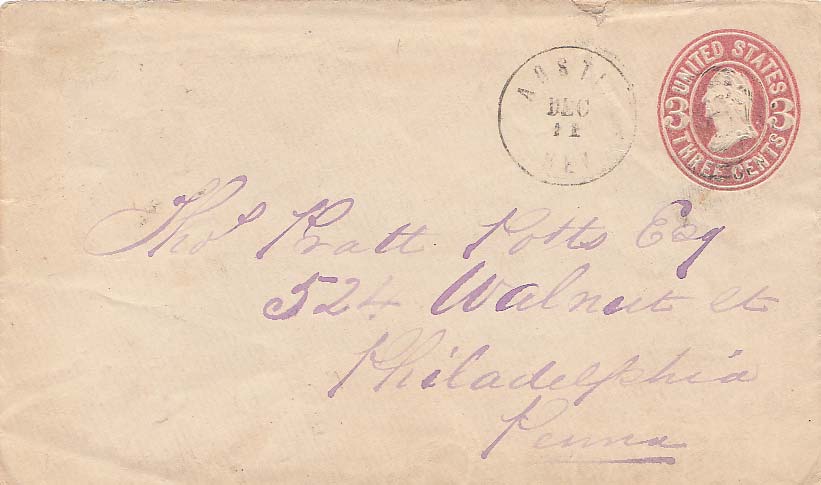 UNITED STATES
3 3
THREE CENTS
AUSTI
DEC
11
NEV
Thos Pratt Potts Esq
524 Walnut St
Philadelphia
Penna